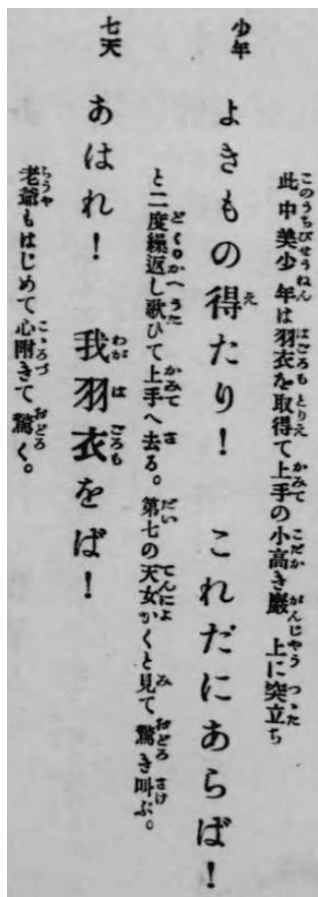 此中美少年は羽衣を取得て上手の小高き巖 上に突立ち
少年 よきもの得たり! これだにあらば!
と二度繰返し歌ひて上手へ去る。第七の天女かくと見て驚き叫ぶ。
七天 あはれ! 我羽衣をば!
老爺もはじめて心附きて驚く。